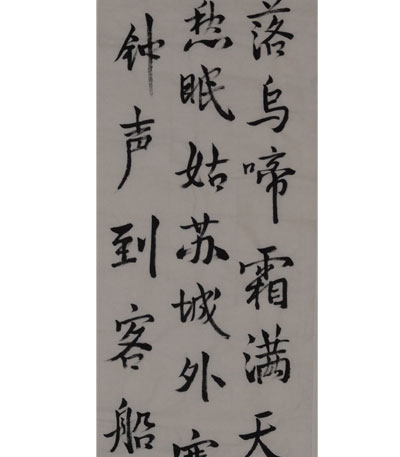 落乌啼霜满天
愁眠姑苏城外寒
钟声到客船